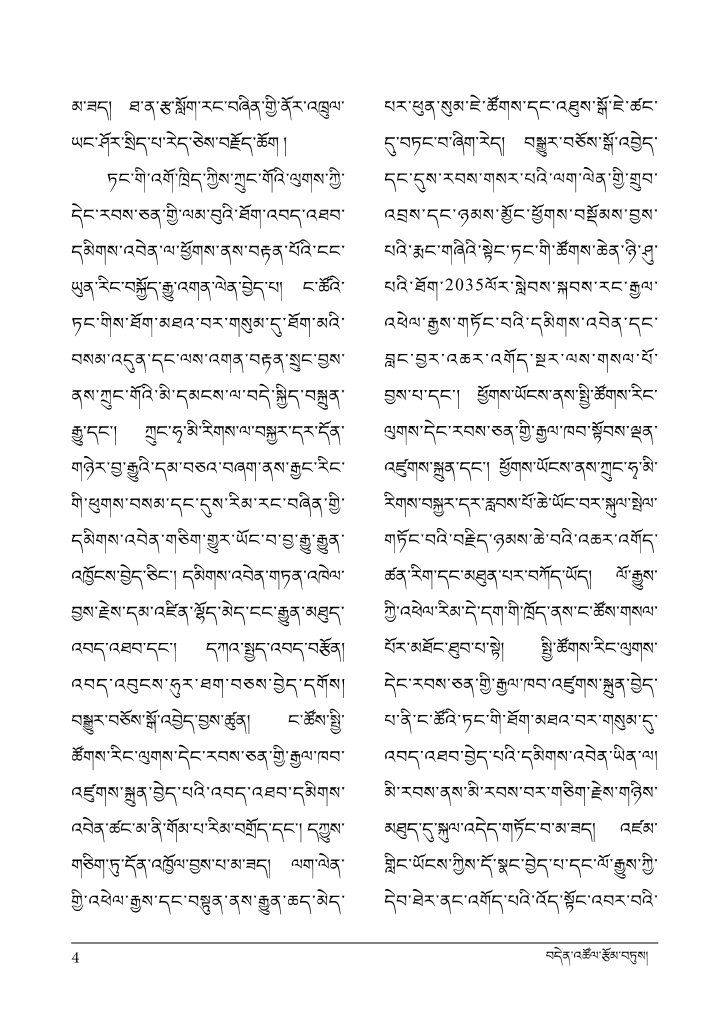 མ་ཟད། ཐ་ན་རྩ་སློག་རང་བཞིན་གྱི་ནོར་འཁྲུལ་
ཡང་ཤོར་སྲིད་པ་རེད་ཅེས་བརྗོད་ཆོག །
ཏང་གི་འགོ་ཁྲིད་ཀྱིས་ཀྲུང་གོའི་ལུགས་ཀྱི་
དེང་རབས་ཅན་གྱི་ལམ་བུའི་ཐོག་འབད་འཐབ་
དམིགས་འབེན་ལ་ཕྱོགས་ནས་བརྟན་པོའི་ངང་
ཡུན་རིང་བསྐྱོད་རྒྱུ་འགན་ལེན་བྱེད་པ། ང་ཚོའི་
ཏང་གིས་ཐོག་མཐའ་བར་གསུམ་དུ་ཐོག་མའི་
བསམ་འདུན་དང་ལས་འགན་བརྟན་སྲུང་བྱས་
ནས་ཀྲུང་གོའི་མི་དམངས་ལ་བདེ་སྐྱིད་བསྐྲུན་
རྒྱུ་དང་། ཀྲུང་ཧྭ་མི་རིགས་ལ་བསྐྱར་དར་དོན་
གཉེར་བྱ་རྒྱུའི་དམ་བཅའ་བཞག་ནས་རྒྱང་རིང་
གི་ཕུགས་བསམ་དང་དུས་རིམ་རང་བཞིན་གྱི་
དམིགས་འབེན་གཅིག་གྱུར་ཡོང་བ་བྱ་རྒྱུ་རྒྱུན་
འཁྱོངས་བྱེད་ཅིང་། དམིགས་འབེན་གཏན་འཁེལ་
བྱས་རྗེས་དམ་འཛིན་ལྷོད་མེད་ངང་རྒྱུན་མཐུད་
འབད་འཐབ་དང་། དཀའ་སྤྱད་འབད་བརྩོན།
འབད་འབུངས་ཧུར་ཐག་བཅས་བྱེད་དགོས།
བསྒྱུར་བཅོས་སྒོ་འབྱེད་བྱས་ཚུན། ང་ཚོས་སྤྱི་
ཚོགས་རིང་ལུགས་དེང་རབས་ཅན་གྱི་རྒྱལ་ཁབ་
འཛུགས་སྐྲུན་བྱེད་པའི་འབད་འཐབ་དམིགས་
འབེན་ཚང་མ་ནི་གོམ་པ་རིམ་བགྲོད་དང་། དཀྱུས་
གཅིག་ཏུ་དོན་འཁྱོལ་བྱས་པ་མ་ཟད། ལག་ལེན་
གྱི་འཕེལ་རྒྱས་དང་བསྟུན་ནས་རྒྱུན་ཆད་མེད་
པར་ཕུན་སུམ་ཇེ་ཚོགས་དང་འཐུས་སྒོ་ཇེ་ཚང་
དུ་བཏང་བ་ཞིག་རེད། བསྒྱུར་བཅོས་སྒོ་འབྱེད་
དང་དུས་རབས་གསར་པའི་ལག་ལེན་གྱི་གྲུབ་
འབྲས་དང་ཉམས་མྱོང་ཕྱོགས་བསྡོམས་བྱས་
པའི་རྨང་གཞིའི་སྟེང་ཏང་གི་ཚོགས་ཆེན་ཉི་ཤུ་
པའི་ཐོག་2035ལོར་སླེབས་སྐབས་རང་རྒྱལ་
འཕེལ་རྒྱས་གཏོང་བའི་དམིགས་འབེན་དང་
བླང་བྱར་འཆར་འགོད་སྔར་ལས་གསལ་པོ་
བྱས་པ་དང་། ཕྱོགས་ཡོངས་ནས་སྤྱི་ཚོགས་རིང་
ལུགས་དེང་རབས་ཅན་གྱི་རྒྱལ་ཁབ་སྟོབས་ལྡན་
འཛུགས་སྐྲུན་དང་། ཕྱོགས་ཡོངས་ནས་ཀྲུང་ཧྭ་མི་
རིགས་བསྐྱར་དར་རླབས་པོ་ཆེ་ཡོང་བར་སྐུལ་སྤེལ་
གཏོང་བའི་བརྗིད་ཉམས་ཆེ་བའི་འཆར་འགོད་
ཚན་རིག་དང་མཐུན་པར་བཀོད་ཡོད། ལོ་རྒྱུས་
ཀྱི་འཕེལ་རིམ་དེ་དག་གི་ཁྲོད་ནས་ང་ཚོས་གསལ་
པོར་མཐོང་ཐུབ་པ་སྟེ། སྤྱི་ཚོགས་རིང་ལུགས་
དེང་རབས་ཅན་གྱི་རྒྱལ་ཁབ་འཛུགས་སྐྲུན་བྱེད་
པ་ནི་ང་ཚོའི་ཏང་གི་ཐོག་མཐའ་བར་གསུམ་དུ་
འབད་འཐབ་བྱེད་པའི་དམིགས་འབེན་ཡིན་ལ།
མི་རབས་ནས་མི་རབས་བར་གཅིག་རྗེས་གཉིས་
མཐུད་དུ་སྐུལ་འདེད་གཏོང་བ་མ་ཟད། འཛམ་
གླིང་ཡོངས་ཀྱིས་དོ་སྣང་བྱེད་པ་དང་ལོ་རྒྱུས་ཀྱི་
དེབ་ཐེར་ནང་འགོད་པའི་འོད་སྟོང་འབར་བའི་
4
བདེན་འཚོལ་རྩོམ་བཏུས།